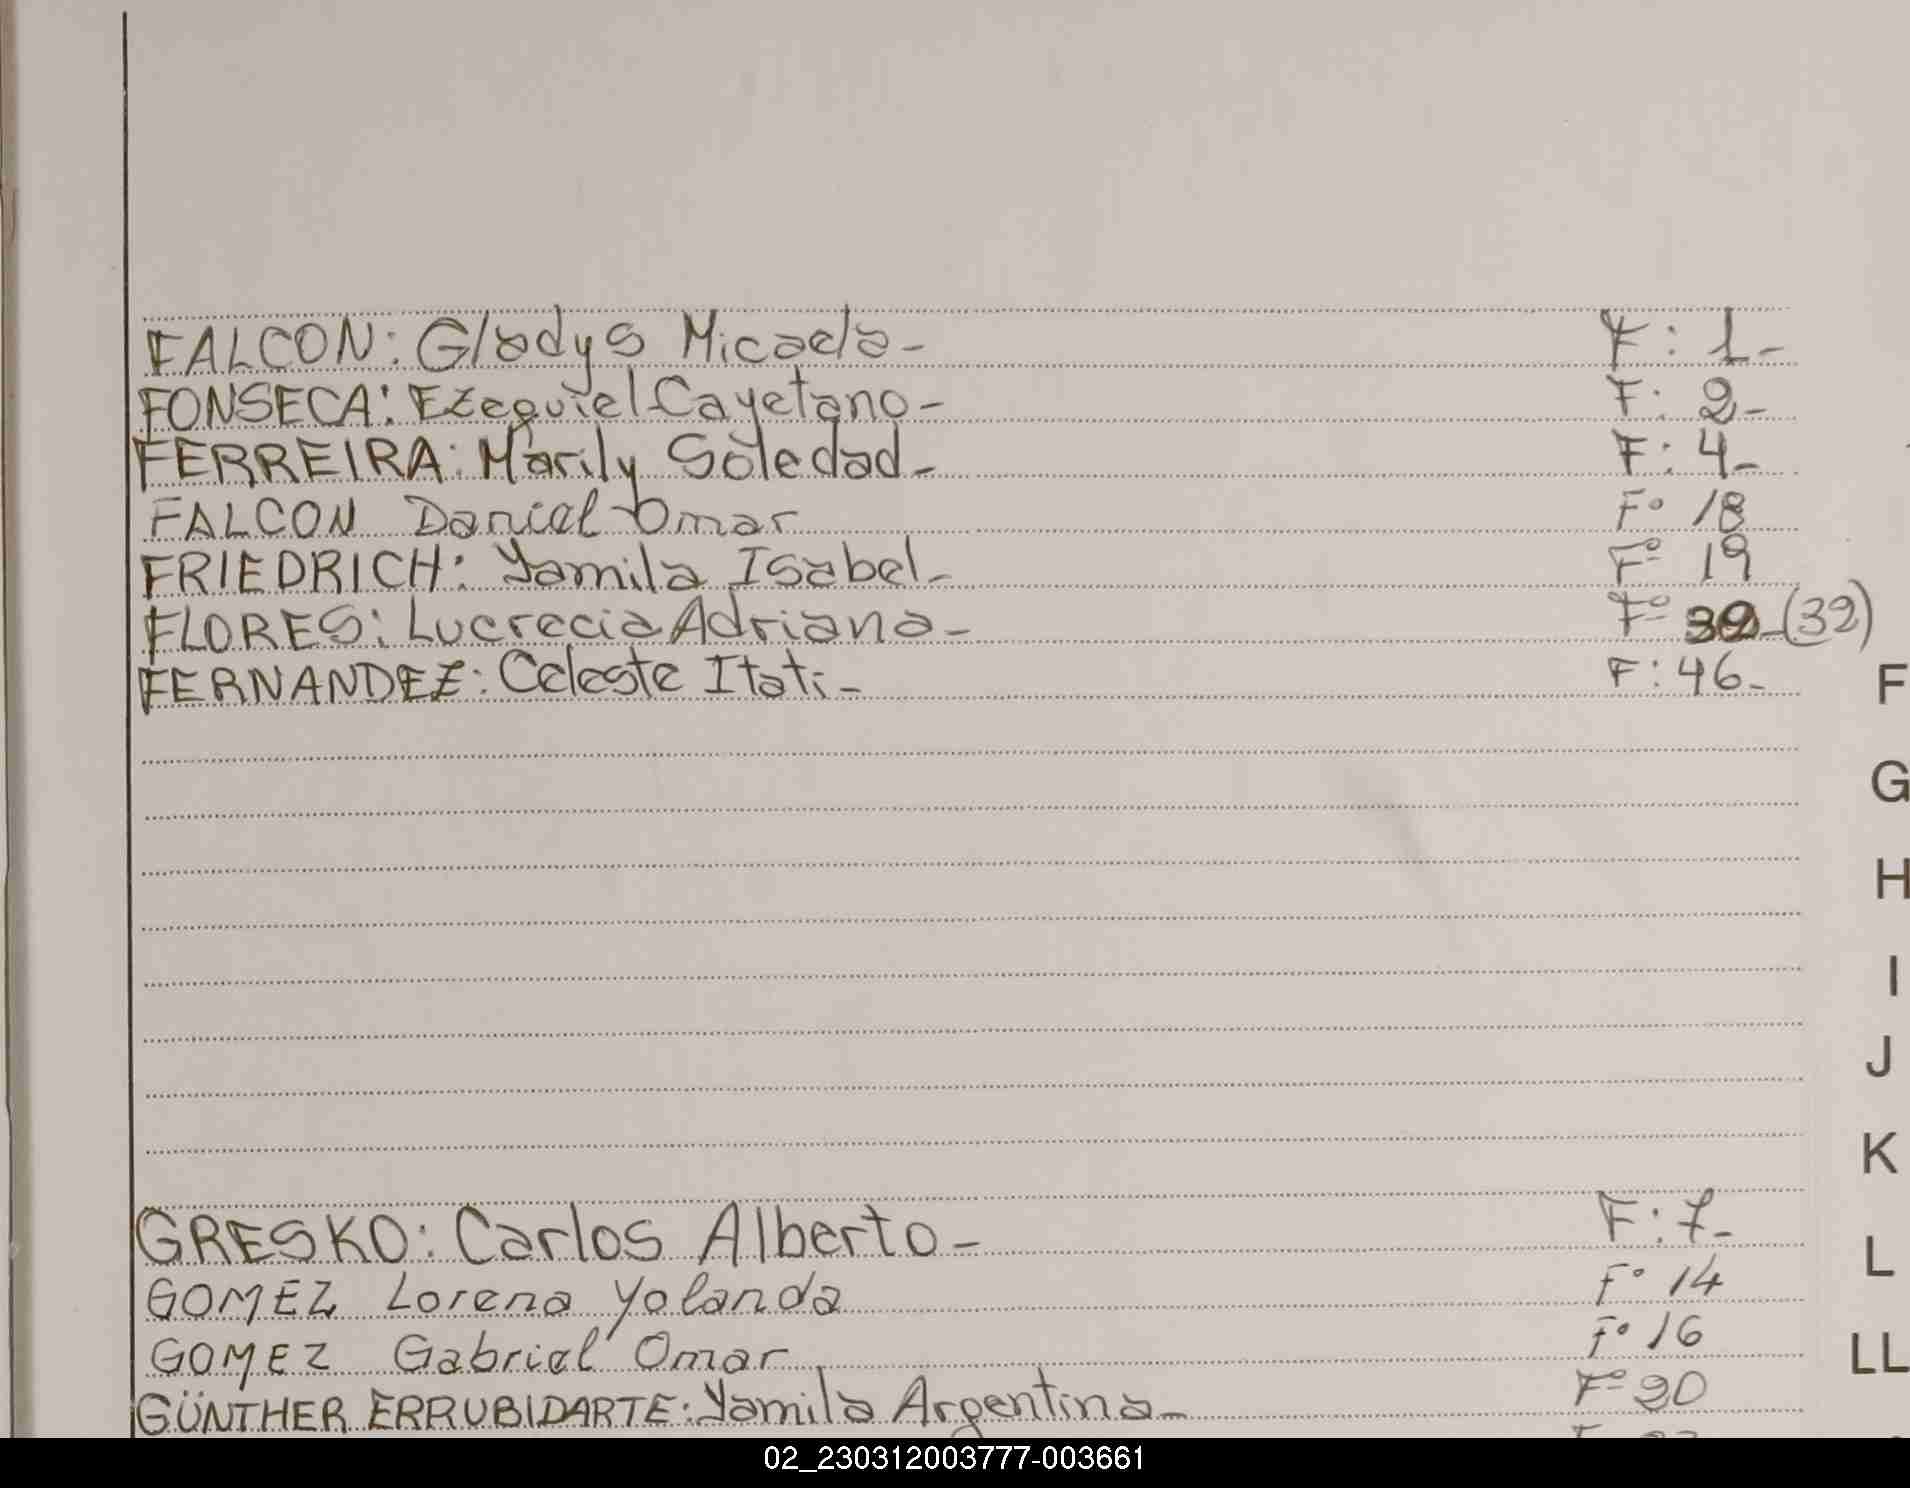 FALCON: Gladys Micaela- F: 1-
FONSECA: Ezequiel Cayetano- F: 2-
FERREIRA: Marily Soledad- F: 4-
FALCON Daniel Omar Fº 18
FRIEDRICH: Yamila Isabel- Fº 19
FLORES: Lucrecia Adriana- Fº 32-(32)
FERNANDEZ: Celeste Itati- F: 46-
F
G
H
I
J
K
GRESKO: Carlos Alberto- F: 7-
L
GOMEZ Lorena Yolanda Fº 14
GOMEZ Gabriel Omar Fº 16
LL
GÜNTHER ERRUBIDARTE: Yamila Argentina- Fº 20
02_230312003777-003661